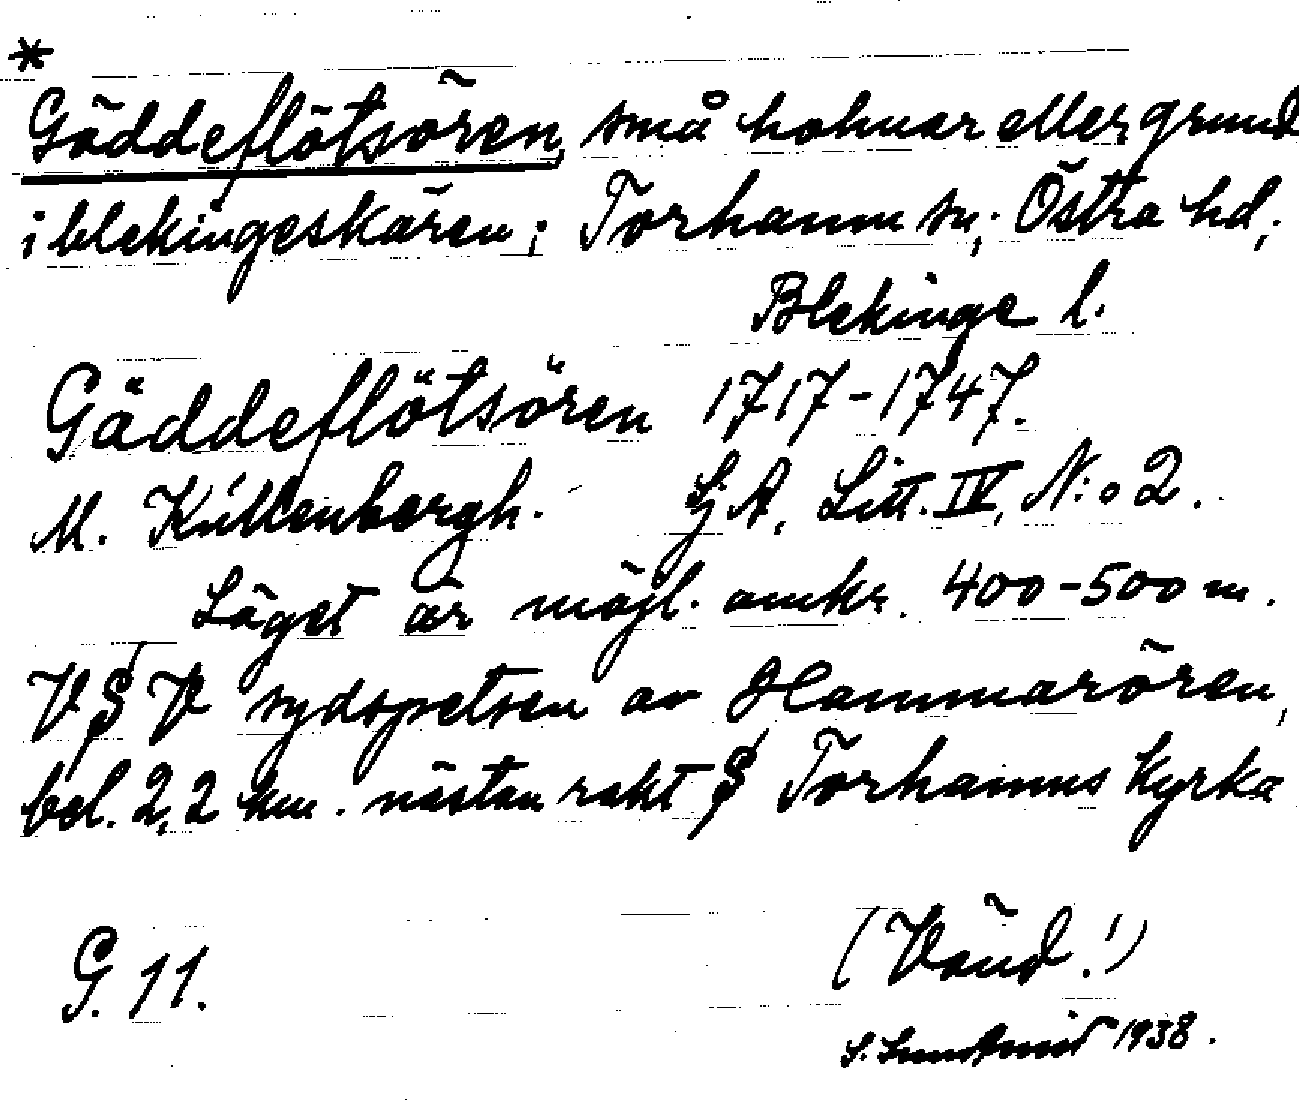 *
Gäddeflötsören, små holmar eller grund
i blekingeskären; Torhamn sn; Östra hd;
Blekinge l.
Gäddeflötsören 1717-1747.
M. Killenbergh. G. A. Litt. IV, N:o 2.
Läget är möjl. omkr. 400-500 m.
V S V sydspetsen av Hammarören,
bel. 2,2 km. nästan rakt S Torhamns kyrka
G. 11. (Vänd!)
S. 1938.